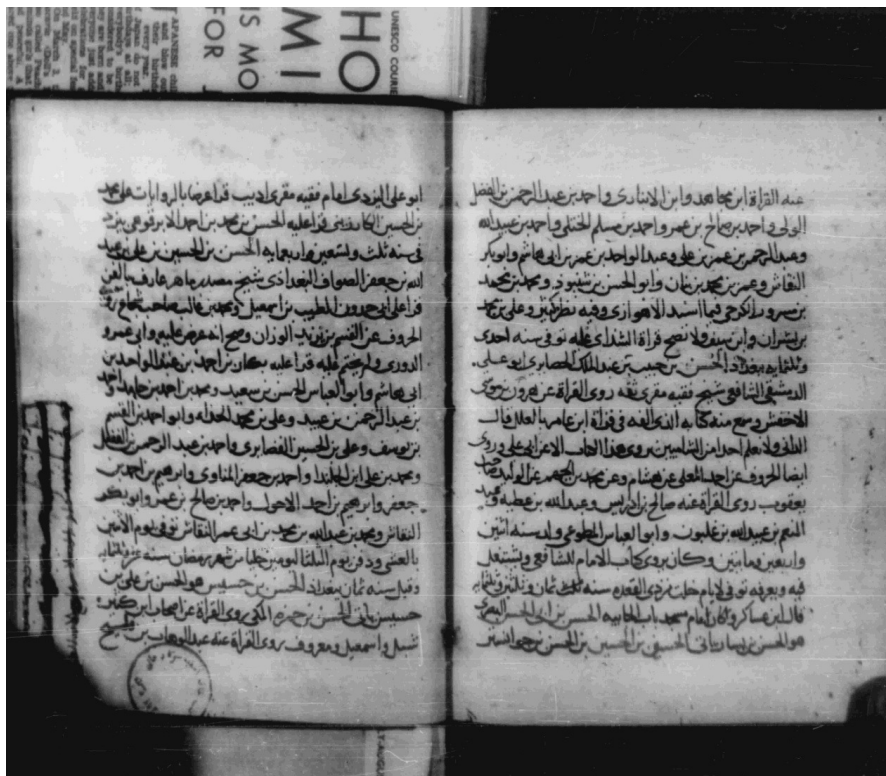 UNESCO COURIE
HO
MI
IS MO
FOR
APANESE chil
and blow out
their birthda
every year.
Japan do not
rthdays at all;
verybody's birth
nsidered to be
hey are born and
eryone just adds
on special fes
nd May.
عنه القراة ابن مجاهد وابن الانباري واحمد بن عبد الرحمن بن الفضل
الولي واحمد بن صالح بن عمر واحمد بن مسلم الختلي واحمد بن عبيد الله
وعبد الرحمن بن عمر بن علي وعبد الواحد بن عمر بن ابي هاشم وابو بكر
النقاش وعمر بن محمد بن بنان وابو الحسن بن شنبوذ ومحمد بن محمد
بن مسرور الكرخي فيما اسند الاهوازي وفيه نظر كبير وعلي بن محمد
بن بشران وابن سيف ولا تصح قراة الشذاي عليه توفي سنه احدى
وثلثمايه ببغداد الحسن بن حبيب بن عبد الملك الحصايري ابو علي
الدمشقي الشافعي شيخ فقيه مقرئ ثقه روى القراة عن هرون بن موسى
الاخفش وسمع منه كتابه الذي الفه في قراة ابن عامر بالعلل قال
الداني ولا نعلم احدا من الشاميين يروي هذا الكتاب الا عن ابي علي وروى
ايضا الحروف عن احمد المعلى عن هشام وعن محمد بن الجهم عن الوليد
يعقوب روى القراة عنه صالح بن ادريس وعبد الله بن عطيه وعبد
المنعم بن عبيد الله بن غلبون وابو العباس المطوعي ولد سنه اثنين
واربعين ومايتين وكان يروي كتاب الامام للشافعي ويشتغل
فيه ويعرفه توفي لايام خلت من ذي القعده سنه ثمان وثلثين وثلثمايه
قال ابن عساكر وكان امام مسجد باب الجابيه الحسن بن ابي الحسن البصري
هو الحسن بن يسار ياتي الحسن بن الحسين بن الحسن بن جواشير
ابو علي اليزدي امام فقيه مقرئ اديب قرا عرضا بالروايات على محمد
بن الحسين الكارزيني قرا عليه الحسن بن محمد بن احمد الابرقوهي بيزد
في سنه ثلث وتسعين واربعمايه الحسن بن الحسين بن علي بن عبد
الله بن جعفر الصواف البغدادي شيخ مصدر ماهر عارف بالفن
قرا على ابي حمدون الطيب بن اسمعيل ومحمد بن غالب صاحب شجاع روى
الحروف عن القسم بن يزيد الوزان وصح انه عرض عليه وابي عمرو
الدوري ولم يختم عليه قرا عليه بكار بن احمد بن عبد الواحد بن
ابي هاشم وابو العباس الحسن بن سعيد ومحمد بن احمد بن حامد واحمد
بن عبد الرحمن بن عبيد وعلي بن محمد الحذاء وابو احمد بن القسم
بن يوسف وعلي بن الحسين الغضايري واحمد بن عبد الرحمن بن الفضل
ومحمد بن علي ابن الجلندا واحمد بن جعفر المناوي وابرهيم بن احمد بن
جعفر وابرهيم بن احمد الاحول واحمد بن صالح بن عمر وابو بكر
النقاش ومحمد بن عبد الله بن محمد بن ابي عمر النقاش توفي يوم الاثنين
بالعشي ودفن يوم الثلثا ليومين خليا من شهر رمضان سنه عشر وثلثمايه
وقيل سنه ثمان ببغداد الحسن بن حسيس هو الحسن بن علي بن
حسيس ياتي الحسن بن حمزه المكي روى القراة عن اصحاب ابن كثير
شبل واسمعيل ومعروف روى القراة عنه عبد الوهاب بن فليح